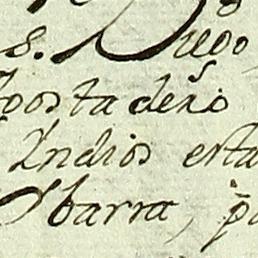 s. Diego
posta deño
Indios esta
Ybarra, p